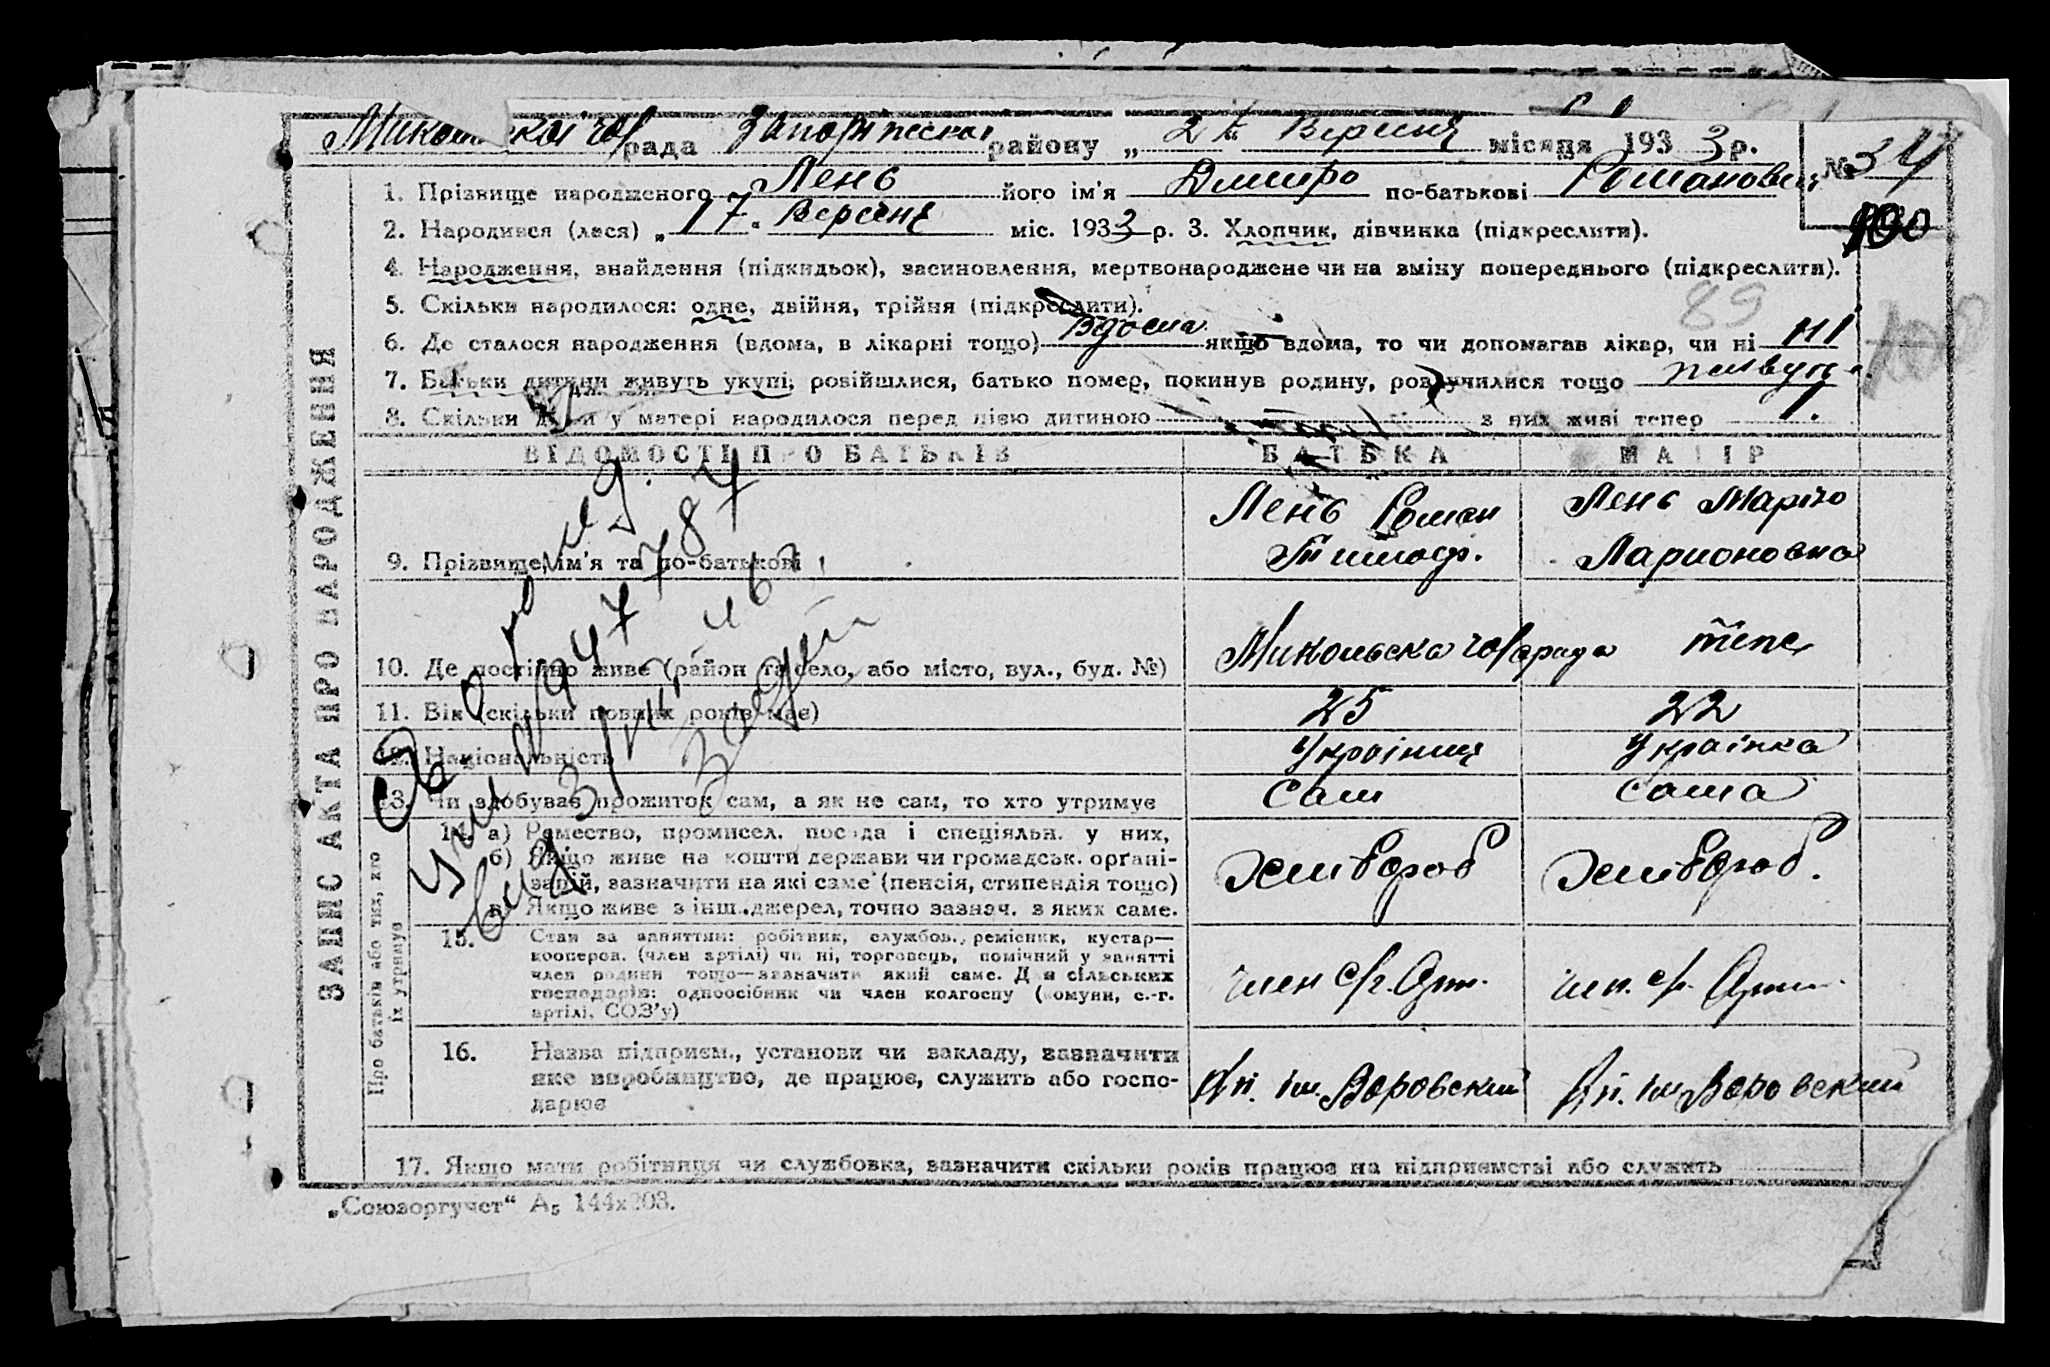 рада Запоріжська району „ Вересня місяця 1933 р. № 34
1. Прізвище народженого Лень його ім'я Дмитро по-батькові Романович
2. Народився (лася) „17“ Вересня міс. 1933 р. 3. Хлопчик, дівчинка (підкреслити).
4. Народження, знайдення (підкидьок), засиновлення, мертвонароджене чи на зміну попереднього (підкреслити).
89
5. Скільки народилося: одне, двійня, трійня (підкреслити).
6. Де сталося народження (вдома, в лікарні тощо) Вдома якщо вдома, то чи допомагав лікар, чи ні ні
7. Батьки дитини живуть укупі, розійшлися, батько помер, покинув родину, розлучилися тощо живуть
8. Скільки у матері народилося перед цією дитиною з них живі тепер 1.
ВІДОМОСТІ ПРО БАТЬКІВ БАТЬКА МАТІР
9. Прізвище, ім'я та по-батькові Лень Роман Тимоф. Лень Марію Ларионовна
10. Де постійно живе (район та село, або місто, вул., буд. №) Микольська рада
11. Вік (скільки повних років має) 25 22
12. Національність Українця Українка
13. Чи здобуває прожиток сам, а як не сам, то хто утримує Сам Сама
ЗАПИС АКТА ПРО НАРОДЖЕННЯ
Про батьків або тих, хто їх утримує
14. а) Ремество, промисел, посада і спеціяльн. у них,
б) Якщо живе на кошти держави чи громадськ. орґані-
зацій, зазначити на які саме (пенсія, стипендія тощо)
в) Якщо живе з інш. джерел, точно зазнач. з яких саме.
Хліборoб Хлібороб.
15. Стан за заняттям: робітник, службов., ремісник, кустар—
кооперов. (член артілі) чи ні, торговець, помічний у занятті
член родини тощо—зазначати який саме. Для сільських
господарів: одноосібник чи член колгоспу (комуни, с.-г.
артілі, СОЗ'у)
член с/г. Арт. чл. с/г. Арт.
16. Назва підприєм., установи чи закладу, зазначити
яке виробництво, де працює, служить або госпо-
дарює
ім. Воровский ім Воровский
17. Якщо мати робітниця чи службовка, зазначити скільки років працює на підприємстві або служить
„Союзоргучет“ А5 144х203.